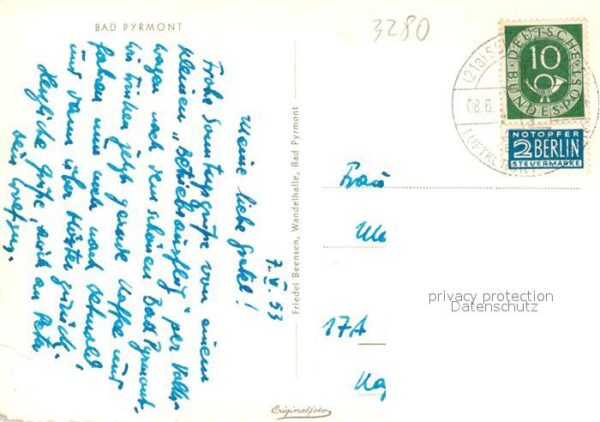 BAD PYRMONT
3280
7. V. 53
Meine liebe Gretel!
Frohe Sonntagsgrüße von einem
kleinen „Betriebsausflug" per Volks-
wagen nach dem schönen Bad Pyrmont.
Wir trinken jetzt gerade Kaffee und
fahren nun noch nach
und dann über Höxter zurück.
Herzliche Grüße, auch an Peter
Dein
Friedel Beensen, Wandelhalle, Bad Pyrmont
Originalfoto
Frau
17A
DEUTSCHE BUNDESPOST
10
NOTOPFER
2 BERLIN
STEUERMARKE
(21a)
08.6.
LUFTKURORT
privacy protection
Datenschutz